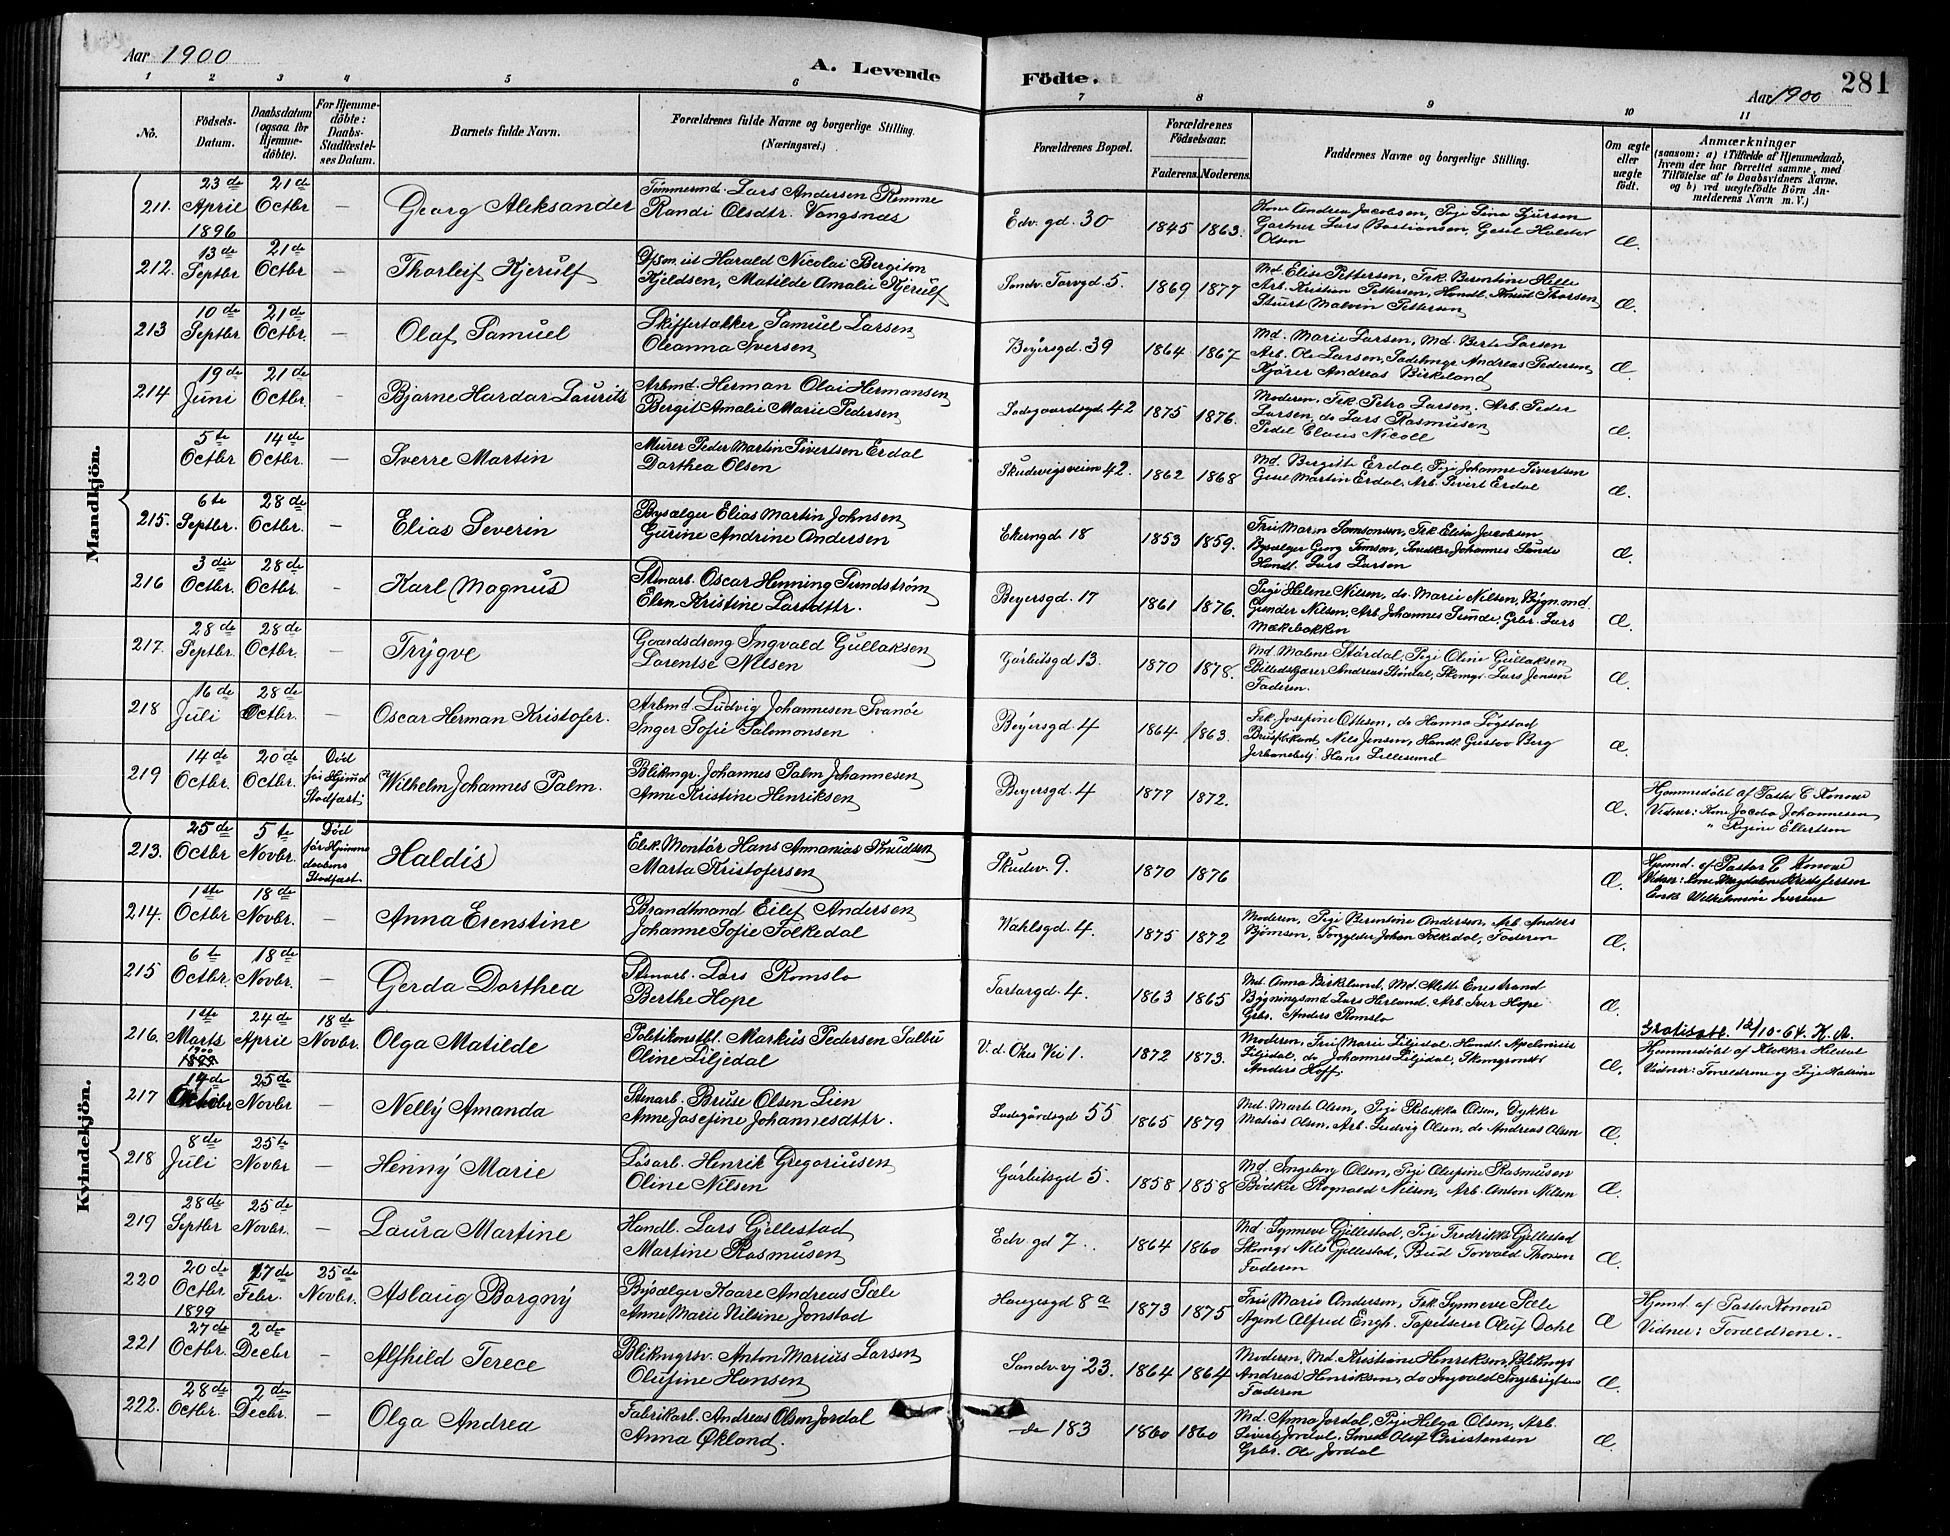 Aar 1900
A. Levende
Födte.
281
Aar 1900
1 2 3 4 5 6 7 8 9 10 11
No.
Födsels-
Datum.
Daabsdatum
(ogsaa for
Hjemme-
döbte).
For Hjemme-
döbte:
Daabs-
Stadfæstel-
ses Datum.
Barnets fulde Navn.
Forældrenes fulde Navne og borgerlige Stilling.
(Næringsvei.)
Forældrenes Bopæl.
Forældrenes
Födselsaar.
Faderens. Moderens.
Faddernes Navne og borgerlige Stilling.
Om ægte
eller
uægte
födt.
Anmærkninger
(saasom: a) i Tilfælde af Hjemmedaab,
hvem der har forrettet samme, med
Tilföielse af to Daabsvidners Navne.
og b) ved uægtefödte Börn An-
melderens Navn m. V.)
Mandkjön.
211. 23de April 1896 21de Octbr — Georg Aleksander
Tømmermd. Lars Andersen Remme
Randi Olsdtr. Vangsnæs
Edv. gd. 30 1845 1863.
Kone Andrea Jacobsen, Pige Sina Sjursen
Gartner Lars Bastiansen, Gesel Halder
Olsen
Æ
212. 13de Septbr 21de Octbr — Thorleif Kjerulf
Harald Nicolai Bergiton
Kjeldsen, Matilde Amalie Kjerulf
Sandv. Torvgd. 5. 1869 1877
Md. Elise Pettersen, Frk. Berentine Hille
Arb. Kristian Pettersen, Handl. Knud Thorsen
Stuert Malvin Pettersen
Æ.
213 10de Septbr 21de Octbr. — Olaf Samuel
Skiffertækker Samuel Larsen
Oleanna Iversen
Beyersgd. 39 1864 1867.
Md. Marie Larsen, Md. Berte Larsen
Arb. Ole Larsen, Sadelmgr Andreas Pedersen
Kjører Andreas Birkeland
Æ.
214 19de Juni 21de Octbr. — Bjarne Hardar Laurits
Arbmd. Herman Olai Hermansen
Bergit Amalie Marie Pedersen
Ladegaardsgd. 42 1875 1876.
Moderen, Frk Petra Larsen, Arb. Peder
Larsen, do Lars Rasmusen
Pedel Claus Nicoll
Æ.
5te Octbr 14de Octbr. — Sverre Martin
Murer Peder Martin Sivertsen Erdal
Dorthea Olsen
Skudevigsveien 42. 1862 1868
Md. Bergitte Erdal, Pige Johanne Sivertsen
Gesel Martin Erdal, Arb. Sivert Erdal
Æ.
215. 6te Septbr. 28de Octbr. — Elias Severin
Bysælger Elias Martin Johnsen
Gurine Andrine Andersen
Ekerngd. 18 1853 1859.
Fru Maren Samsonsen, Frk Elisa Jacobsen
Bysælger Georg Tomson, Snedker Johannes Sunde
Handl. Lars Larsen
Æ.
216 3die Octbr. 28de Octbr. — Karl Magnus
Stenarb. Oscar Henning Sundstrøm
Elen Kristine Larsdttr.
Beyersgd. 17 1861 1876.
Pige Helene Nilsen, do. Marie Nilsen, Bygn.md.
Gunder Nilsen, Arb Johannes Sunde, Grbr. Lars
Æ.
217. 28de Septbr. 28de Octbr. — Trygve
Gaardsdreng Ingvald Gullaksen
Lorentse Nilsen
Garbeitsgd 13. 1870 1878.
Md. Malene Stårdal, Pige Oline Gullaksen
Andreas Skomgr. Lars Jensen
Faderen.
Æ.
218 16de Juli 28de Octbr. — Oscar Herman Kristofer.
Arbmd Ludvig Johannesen Svanøe
Inger Sofie Salomonsen
Beyersgd. 4 1864 1863.
Frk. Josefine Ottesen, do Hanna Løgstad
Nils Jensen, Handl. Gustav Berg
Jerbanebetj. Hans Lillesund
Æ.
219 14de Octbr. 20de Octbr. Død før Hjmd Stadfæst. Wilhelm Johannes Palm.
Blikmgr. Johannes Palm Johannesen
Anne Kristine Henriksen
Beyersgd. 4 1877 1872.
Æ.
Hjemmedøbt af Pastor C Konow
Vidner: Kone Jacoba Johannesen
" Regine Ellertsen
Kvindekjön.
213. 25de Octbr 5te Novbr. Død før Hjemme daabens Stadfæst. Haldis
Elek Montör Hans Annanias Knudsen
Marta Kristofersen
Skudev. 9. 1870 1876
Æ.
Hjemd. af Pastor C Konow
Vidner: Kone Magdalene Kristofersen
Enke Wilhelmine Iversen
214. 1ste Octbr 18de Novbr. — Anna Erenstine
Brandtmand Eilef Andersen
Johanne Sofie Folkedal
Wahlsgd. 4. 1875 1872
Moderen, Pige Berentine Andersen, Arb. Anders
Bjørnsen, Forgylder Johan Folkedal, Faderen
Æ.
215 6te Octbr. 18de Novbr. — Gerda Dorthea
Stenarb. Lars Romslo
Berthe Hope
Tartargd. 4. 1863 1865
Md. Anna Birkeland, Md. Mette Enestrand
Bygningsmd Lars Herland, Arb Iver Hope
Grbr. Anders Romslo
Æ.
216. 1ste Marts 1900 24de April 18de Novbr. Olga Matilde
Politikonstbl. Markus Pedersen Salbu
Oline Liljedal
V. d. Økes Vei 1. 1872 1873.
Moderen, Fru Marie Liljedal, Handl. Apelonius
Liljedal, do Johannes Liljedal,
Anders Hoff
Æ.
Gratisatt. 12/10-64. K. A.
Hjemmedøbt af Klokker Heldal
Vidner: Foreldrene og Pige Katrine
217 14de Octbr 25de Novbr — Nelly Amanda
Stenarb. Bruse Olsen Lien
Anne Josefine Johannesdttr.
Ladegårdsgd 55 1865 1879
Md. Marte Olsen, Pige Rebekka Olsen, Dykker
Matias Olsen, Arb. Ludvig Olsen, do Andreas Olsen
Æ.
218 8de Juli 25te Novbr — Henny Marie
Løsarb. Henrik Gregoriusen
Oline Nilsen
Garbeitsgd 5. 1858 1858
Md. Ingeborg Olsen, Pige Olufine Rasmusen
Bødker Ragnvald Nilsen, Arb. Anton Nilsen
Æ.
219 28de Septbr 25de Novbr. — Laura Martine
Handl. Lars Gjellestad
Martine Rasmusen
Edv. gd 7. 1864 1860
Md. Synneve Gjellestad, Pige Fredrikke Gjellestad
Skomgr Nils Gjellestad, Bud Torvald Thorsen
Faderen
Æ.
220 20de Octbr 1899 17de Febr. 25de Novbr. Aslaug Borgny
Bysælger Kaare Andreas Sæle
Anne Marie Nilsine Jonstad
Haugesgd 8a 1873 1875
Fru Marie Andersen, Frk. Synneve Sæle
Agent Alfred Engh, Tapetserer Oluf Dahl
Æ
Hjemd. af Pastor Konow
Vidner: Forældrene.
221 27de Octbr. 2de Decbr — Alfhild Terece
Blikmgrsv. Anton Marius Larsen
Olufine Hansen
Sandv.vj 23. 1864 1864
Moderen, Md. Kristiane Henriksen, Blikmgr
Andreas Henriksen, do Ingvald Ingebrigtsen
Faderen
Æ.
222. 28de Octbr. 2den Decbr. — Olga Andrea
Fabrikarb. Andreas Olsen Jordal
Anna Økland.
do 183 1860 1860
Md. Anna Jordal, Pige Helga Olsen, Arb.
Sivert Jordal, Smed Oluf Christensen
Grbr. Ole Jordal
Æ.